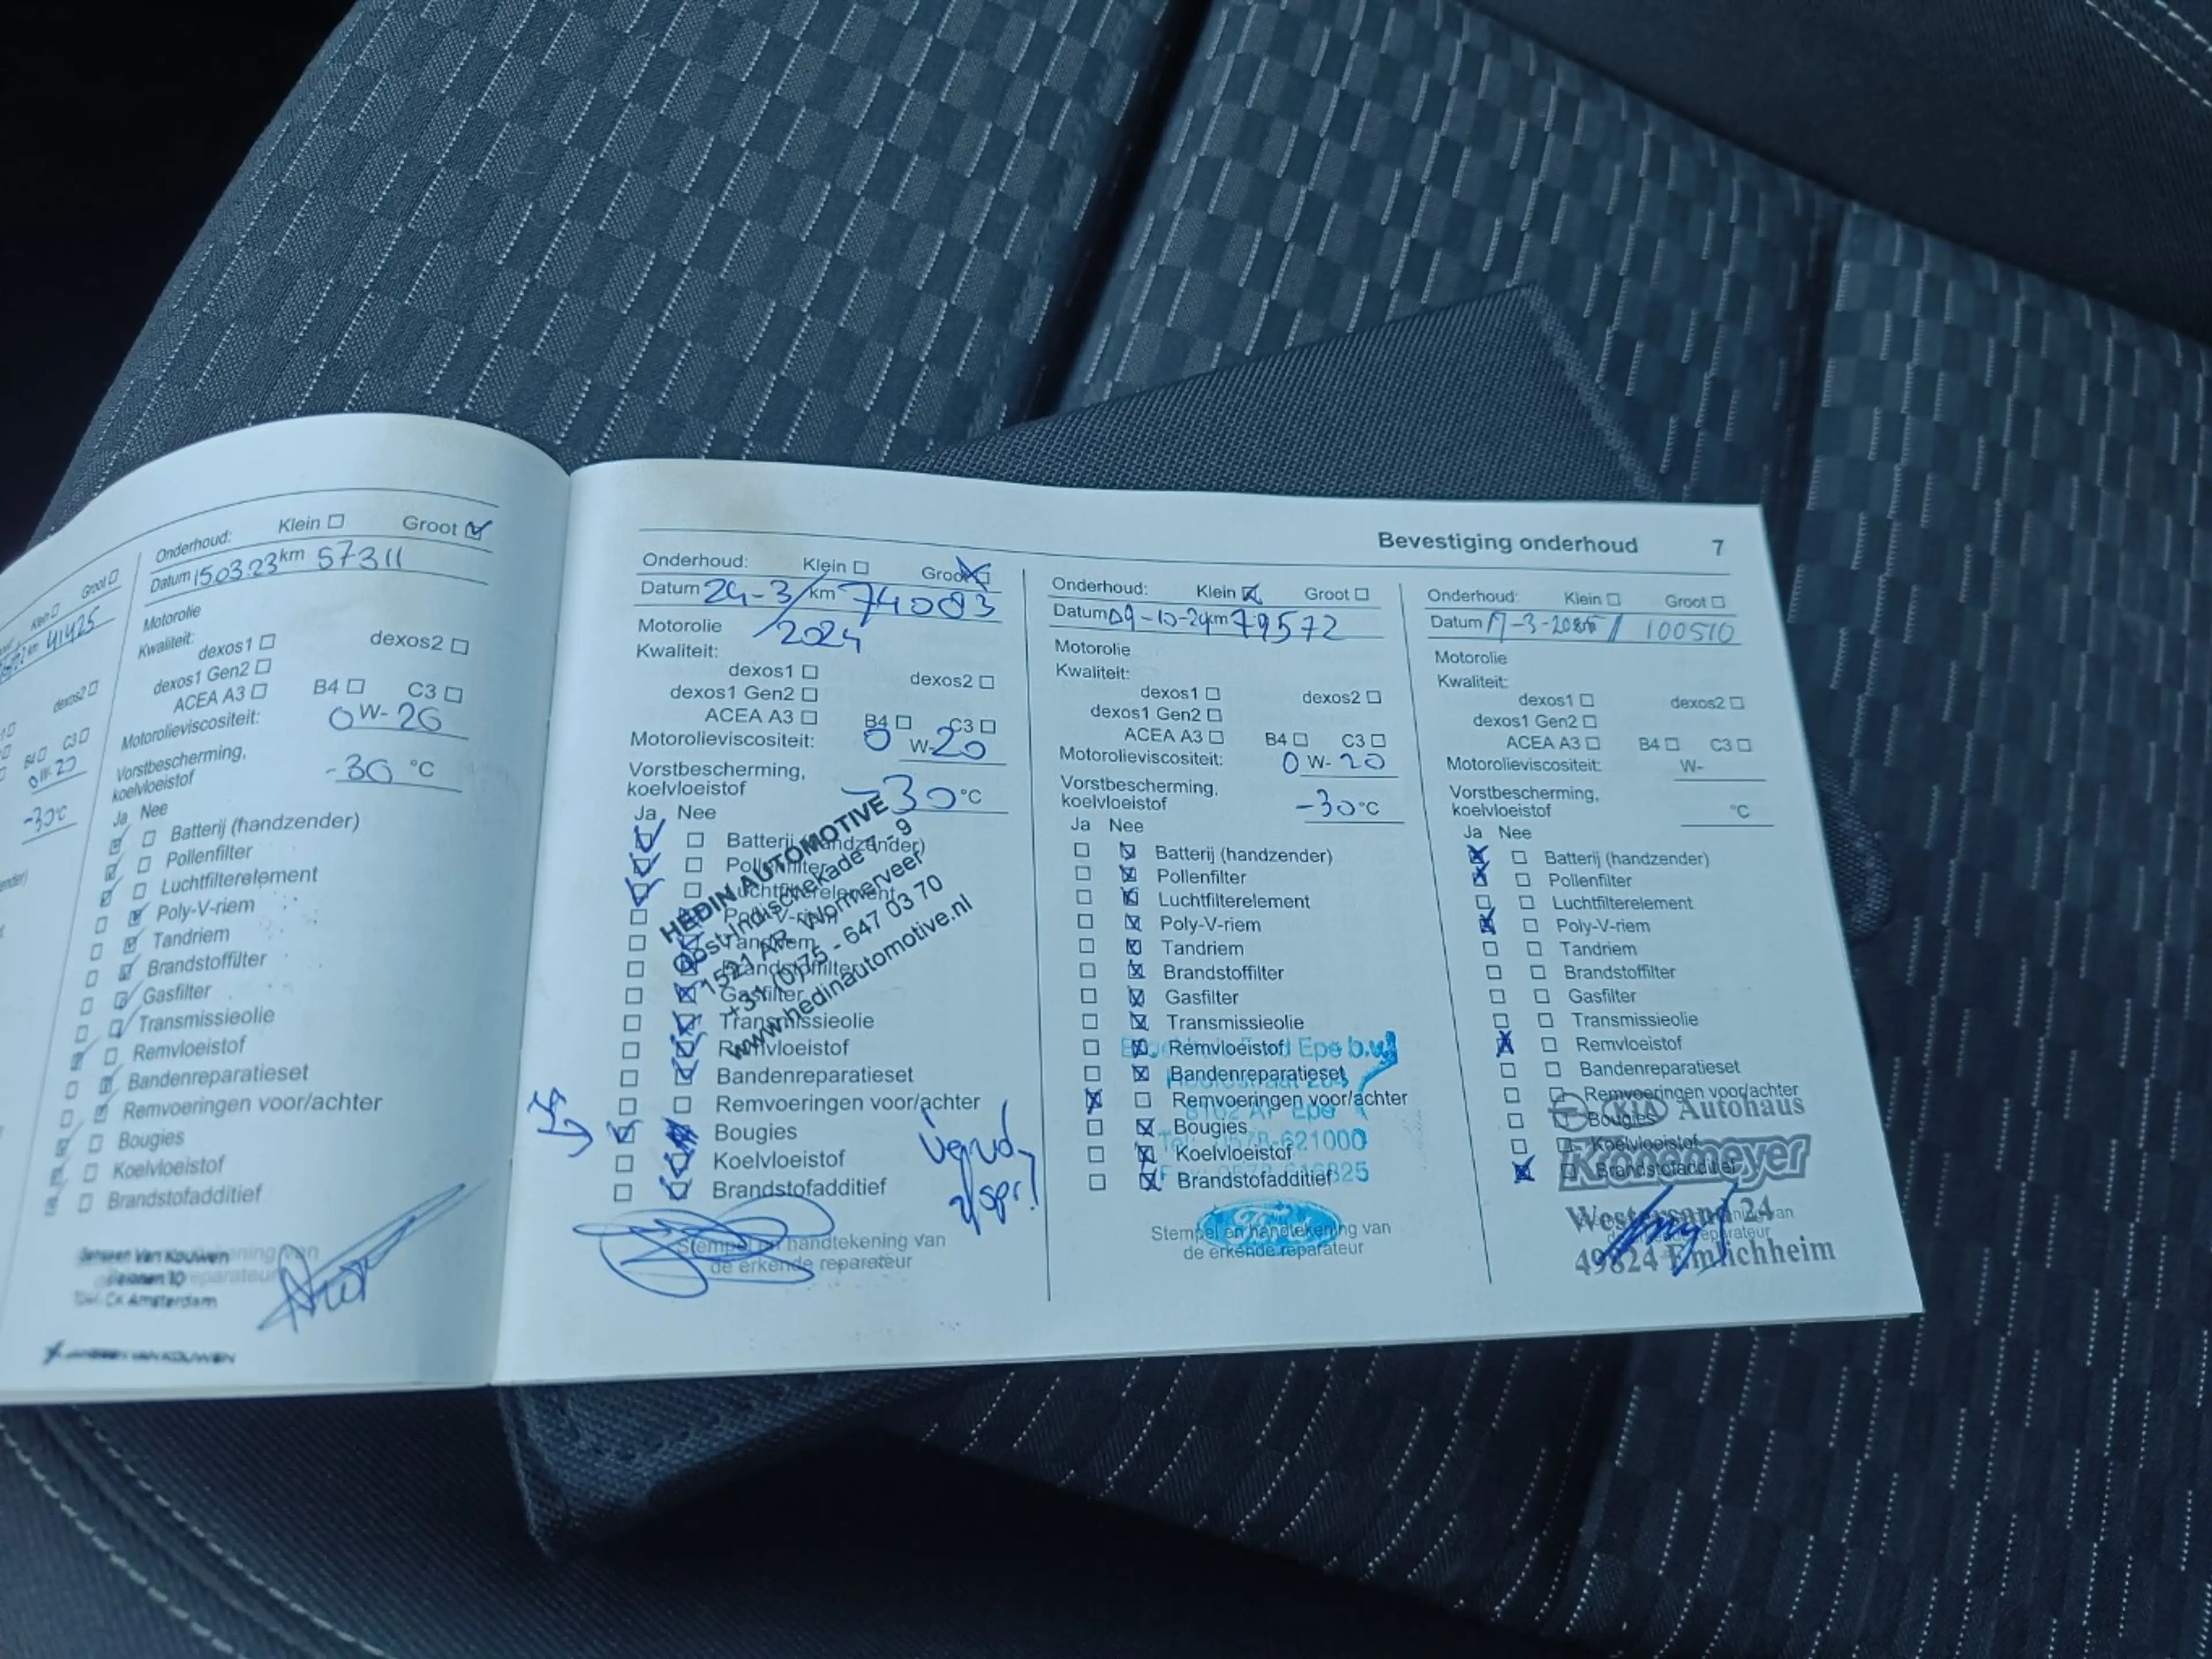 Groot
41425
dexos2
B4 C3
0W-20
-30°C
Onderhoud: Klein Groot
Datum 15.03.23 km 57311
Motorolie
Kwaliteit:
dexos1 dexos2
dexos1 Gen2
ACEA A3 B4 C3
Motorolieviscositeit: 0W-20
Vorstbescherming,
koelvloeistof -30 °C
Ja Nee
Batterij (handzender)
Pollenfilter
Luchtfilterelement
Poly-V-riem
Tandriem
Brandstoffilter
Gasfilter
Transmissieolie
Remvloeistof
Bandenreparatieset
Remvoeringen voor/achter
Bougies
Koelvloeistof
Brandstofadditief
Janssen Van Kouwen
Amsterdam
JANSSEN VAN KOUWEN
Bevestiging onderhoud 7
Onderhoud: Klein Groot
Datum 24-3/2024 km 74083
Motorolie
Kwaliteit:
dexos1 dexos2
dexos1 Gen2
ACEA A3 B4 C3
Motorolieviscositeit: 0 W-20
Vorstbescherming,
koelvloeistof -30°C
Ja Nee
Batterij (handzender)
Pollenfilter
Luchtfilterelement
Poly-V-riem
Tandriem
Brandstoffilter
Gasfilter
Transmissieolie
Remvloeistof
Bandenreparatieset
Remvoeringen voor/achter
Bougies
Koelvloeistof
Brandstofadditief
HEDIN AUTOMOTIVE
Oost-Indischekade 7 - 9
1521 AR Wormerveer
+31 (0)75 - 647 03 70
www.hedinautomotive.nl
Stempel en handtekening van
de erkende reparateur
Onderhoud: Klein Groot
Datum 09-10-24 km 79572
Motorolie
Kwaliteit:
dexos1 dexos2
dexos1 Gen2
ACEA A3 B4 C3
Motorolieviscositeit: 0 W- 20
Vorstbescherming,
koelvloeistof -30°C
Ja Nee
Batterij (handzender)
Pollenfilter
Luchtfilterelement
Poly-V-riem
Tandriem
Brandstoffilter
Gasfilter
Transmissieolie
Remvloeistof
Bandenreparatieset
Remvoeringen voor/achter
Bougies
Koelvloeistof
Brandstofadditief
Epe b.v.
8162 AP Epe
Tel. 0578-621000
Ford
Stempel en handtekening van
de erkende reparateur
Onderhoud: Klein Groot
Datum 17-3-2025 100510
Motorolie
Kwaliteit:
dexos1 dexos2
dexos1 Gen2
ACEA A3 B4 C3
Motorolieviscositeit: W-
Vorstbescherming,
koelvloeistof °C
Ja Nee
Batterij (handzender)
Pollenfilter
Luchtfilterelement
Poly-V-riem
Tandriem
Brandstoffilter
Gasfilter
Transmissieolie
Remvloeistof
Bandenreparatieset
Remvoeringen voor/achter
Bougies
Koelvloeistof
Brandstofadditief
KIA Autohaus
Westersand 24
49824 Emlichheim